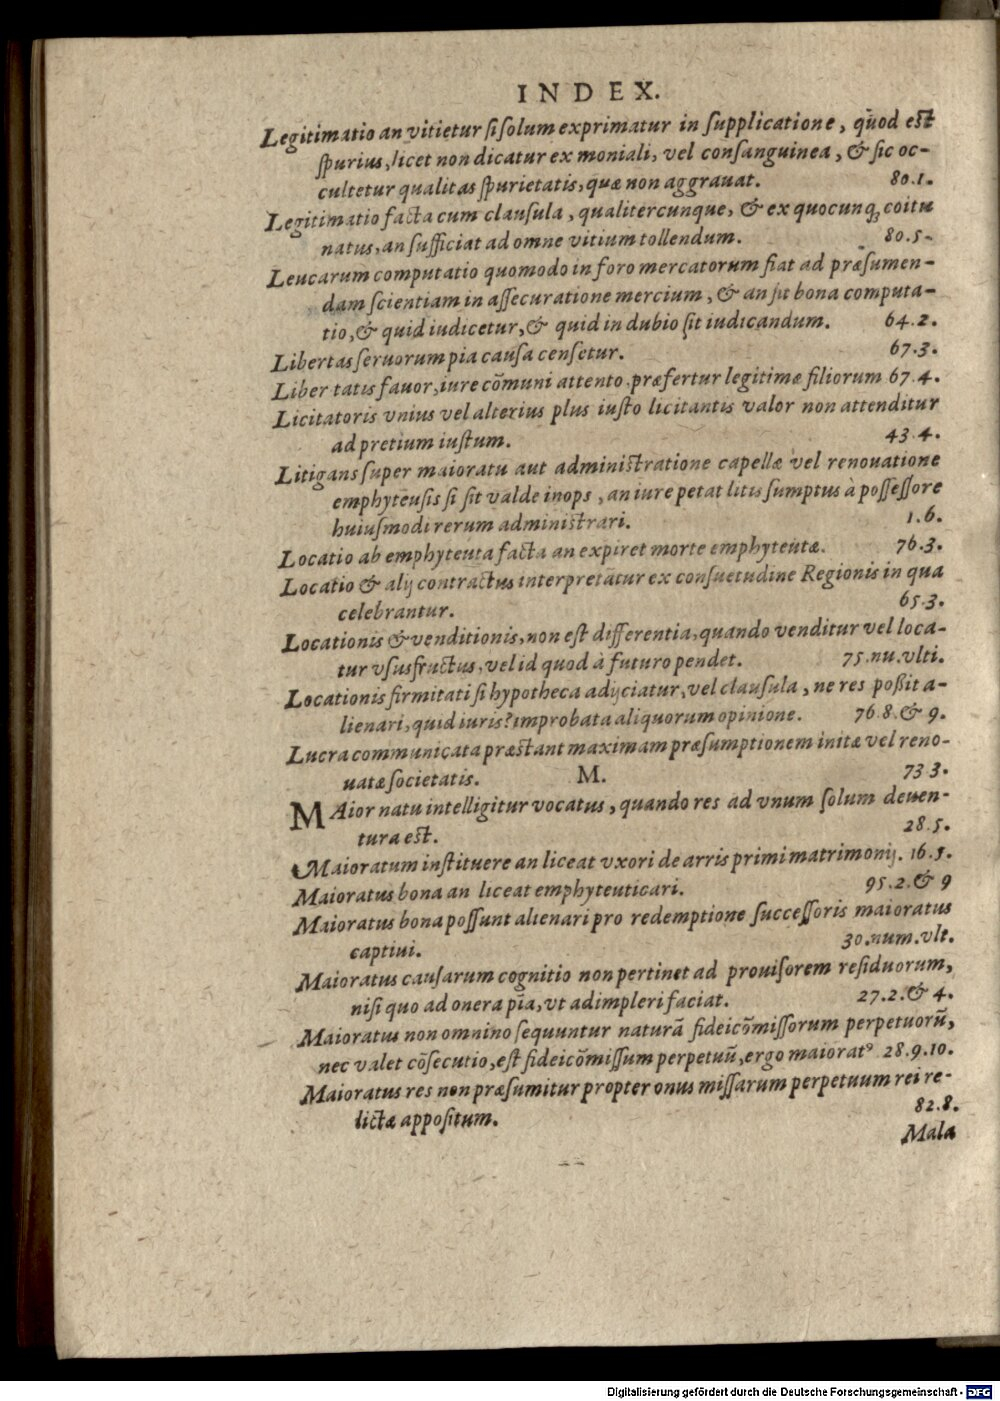 INDEX.
Legitimatio an vitietur si solum exprimatur in supplicatione, quòd est
spurius, licet non dicatur ex moniali, vel consanguinea, & sic oc-
cultetur qualitas spurietatis, quæ non aggrauat. 80.1.
Legitimatio facta cum clausula, qualitercunque, & ex quocunq; coitu
natus, an sufficiat ad omne vitium tollendum. 80.5.
Leucarum computatio quomodo in foro mercatorum fiat ad præsumen-
dam scientiam in assecuratione mercium, & an sit bona computa-
tio, & quid iudicetur, & quid in dubio sit iudicandum. 64.2.
Libertas seruorum pia causa censetur. 67.3.
Libertatis fauor, iure cōmuni attento præfertur legitimæ filiorum 67.4.
Licitatoris vnius vel alterius plus iusto licitantis valor non attenditur
ad pretium iustum. 43.4.
Litigans super maioratu aut administratione capellæ vel renouatione
emphyteusis si sit valde inops, an iure petat litis sumptus à possessore
huiusmodi rerum administrari. 1.6.
Locatio ab emphyteuta facta an expiret morte emphyteutæ. 76.3.
Locatio & alij contractus interpretātur ex consuetudine Regionis in qua
celebrantur. 65.3.
Locationis & venditionis, non est differentia, quando venditur vel loca-
tur vsusfructus, vel id quod à futuro pendet. 75.nu.vlti.
Locationis firmitati si hypotheca adijciatur, vel clausula, ne res poßit a-
lienari, quid iuris? improbata aliquorum opinione. 76.8.& 9.
Lucra communicata præstant maximam præsumptionem initæ vel reno-
uatæ societatis. 73 3.
M.
MAior natu intelligitur vocatus, quando res ad vnum solum deuen-
tura est. 28.5.
Maioratum instituere an liceat vxori de arris primi matrimonij. 16.5.
Maioratus bona an liceat emphyteuticari. 95.2.& 9
Maioratus bona possunt alienari pro redemptione successoris maioratus
captiui. 30.num.vlt.
Maioratus causarum cognitio non pertinet ad prouisorem residuorum,
nisi quo ad onera pia, vt adimpleri faciat. 27.2.& 4.
Maioratus non omnino sequuntur naturā fideicōmissorum perpetuorū,
nec valet cōsecutio, est fideicōmissum perpetuū, ergo maiorat⁹ 28.9.10.
Maioratus res non præsumitur propter onus missarum perpetuum rei re-
lictæ appositum. 82.8.
Mala
Digitalisierung gefördert durch die Deutsche Forschungsgemeinschaft - DFG